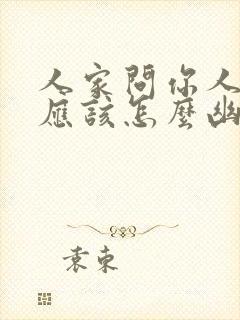 人家問你人
應該怎麼幽
袁東